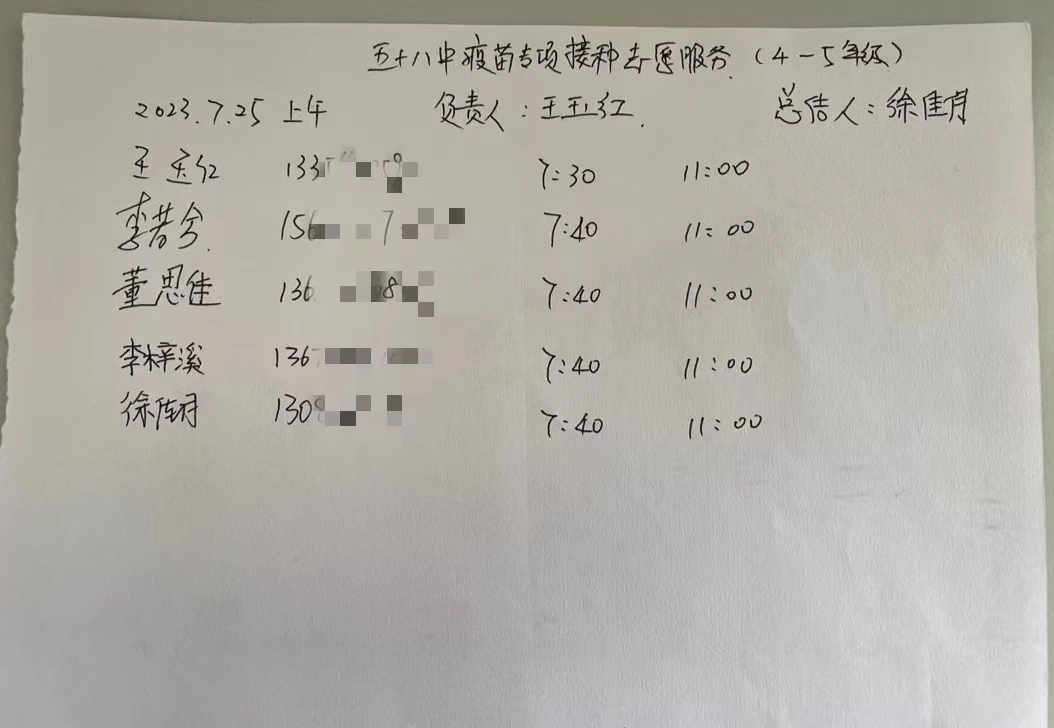 五十八中疫苗专项接种志愿服务（4-5年级）
2023.7.25 上午 负责人：王玉红. 总结人：徐佳月
王玉红 133 7:30 11:00
李若兮 156 7 7:40 11:00
董思佳 136 8 7:40 11:00
李梓溪 136 7:40 11:00
徐佳月 130 7:40 11:00